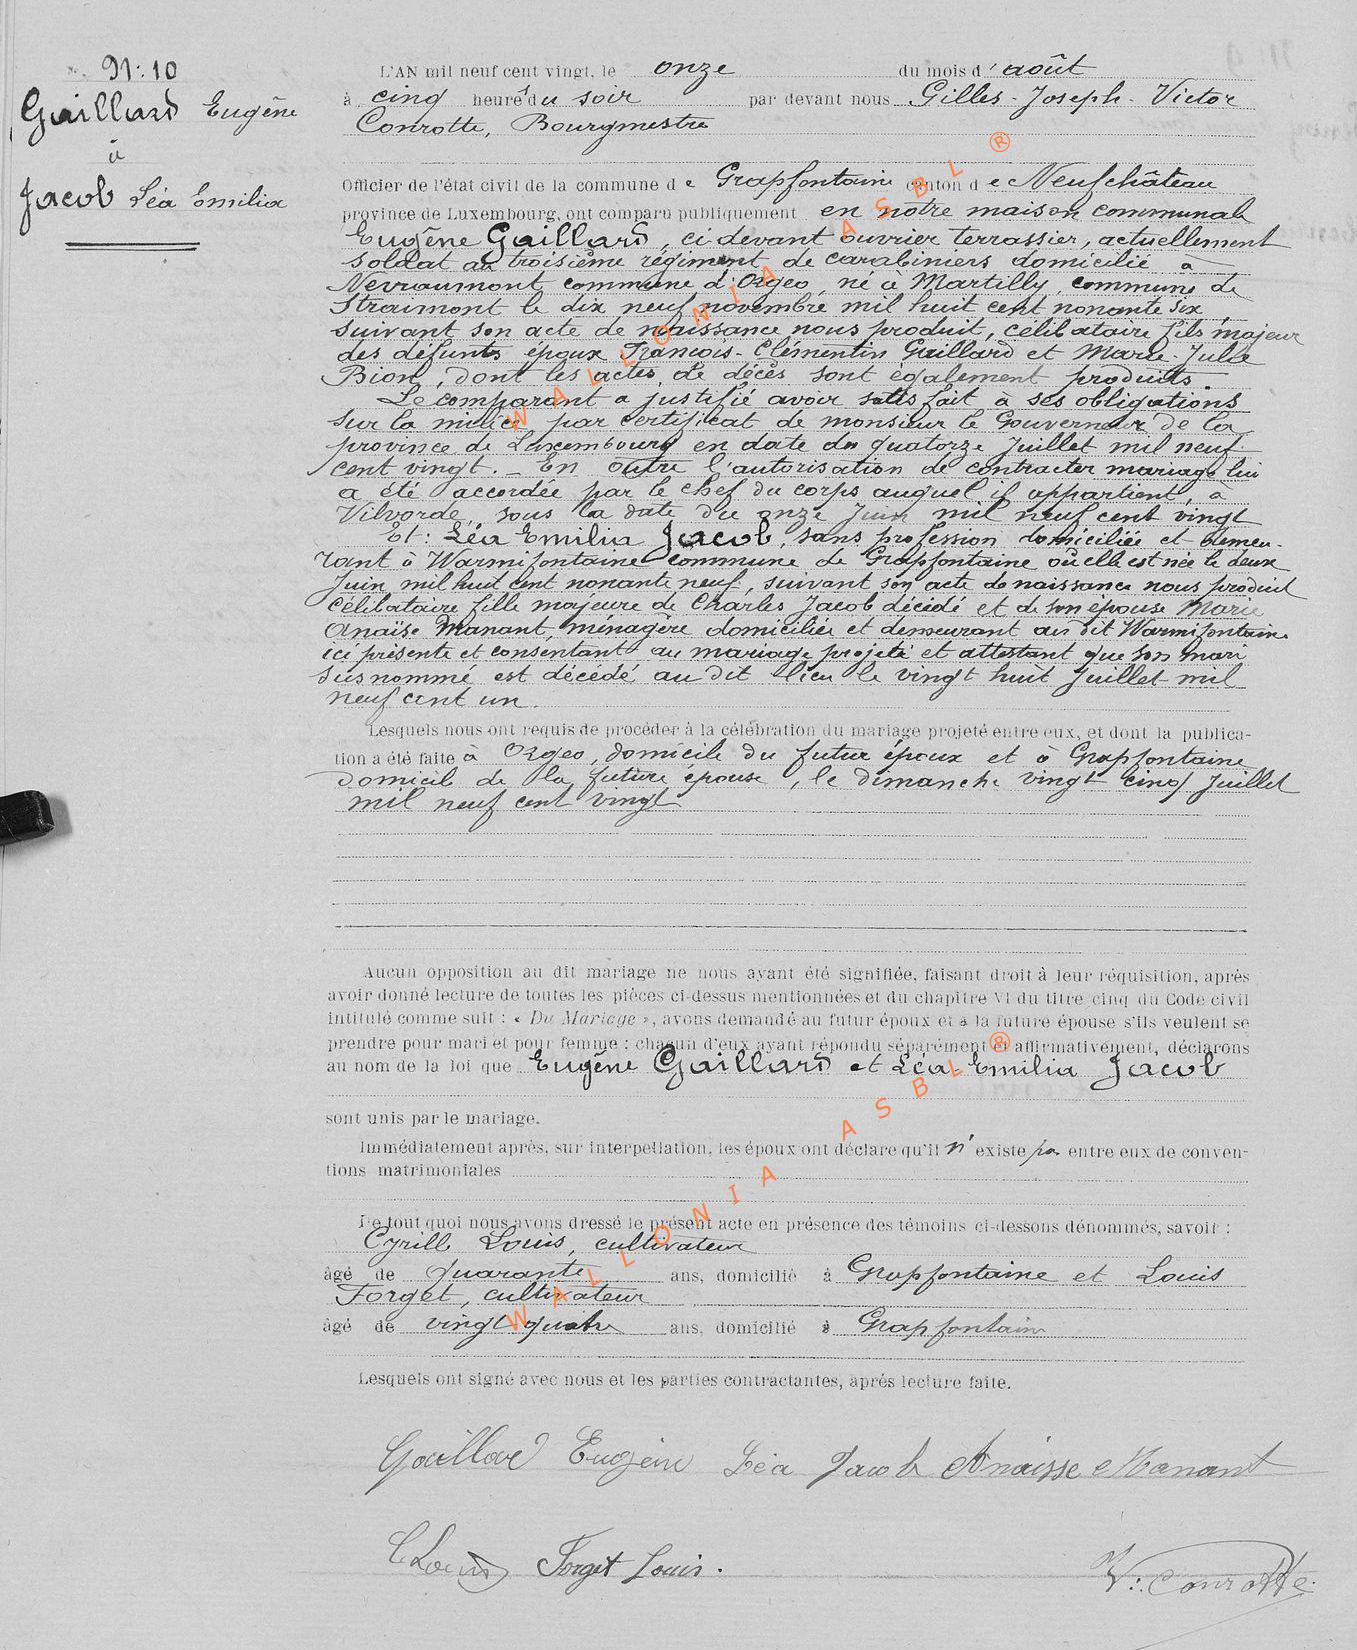 N: 10
Gaillard Eugêne
à
Jacob Léa Emilia
L'AN mil neuf cent vingt, le onze du mois d'août
à cinq heures du soir par devant nous Gilles-Joseph-Victor
Conrotte, Bourgmestre
Officier de l'état civil de la commune de Grapfontaine canton de Neufchâteau
province de Luxembourg, ont comparu publiquement en notre maison communale
Eugêne Gaillard, ci devant ouvrier terrassier, actuellement
soldat au troisième régiment de carabiniers domicilié à
Nevraumont commune d'Orgeo, né à Martilly, commune de
Straimont le dix neuf novembre mil huit cent nonante six
suivant son acte de naissance nous produit, célibataire fils majeur
des défunts époux François-Clémentin Gaillard et Marie-Julie
Bion, dont les actes de décès sont également produits.
Le comparant a justifié avoir satisfait à ses obligations
sur la milice par certificat de monsieur le Gouverneur de la
province de Luxembourg en date du quatorze Juillet mil neuf
cent vingt. _ En outre l'autorisation de contracter mariage lui
a été accordée par le chef du corps auquel il appartient, à
Vilvorde, sous la date du onze Juin mil neuf cent vingt
Et: Léa Emilia Jacob, sans profession domiciliée et demeu-
rant à Warmifontaine commune de Grapfontaine où elle est née le deux
Juin mil huit cent nonante neuf, suivant son acte de naissance nous produit
célibataire fille majeure de Charles Jacob décédé et de son épouse Marie
Anaïse Manant, ménagère domiciliée et demeurant au dit Warmifontaine
ici présente et consentant au mariage projeté et attestant que son mari
susnommé est décédé au dit lieu le vingt huit Juillet mil
neuf cent un.
Lesquels nous ont requis de procéder à la célébration du mariage projeté entre eux, et dont la publica-
tion a été faite à Orgeo, domicile du futur époux et à Grapfontaine
domicile de la future épouse, le dimanche vingt cinq Juillet
mil neuf cent vingt
Aucun opposition au dit mariage ne nous ayant été signifiée, faisant droit à leur réquisition, après
avoir donné lecture de toutes les pièces ci-dessus mentionnées et du chapitre VI du titre cinq du Code civil
intitulé comme suit : « Du Mariage », avons demandé au futur époux et à la future épouse s'ils veulent se
prendre pour mari et pour femme : chacun d'eux ayant répondu séparément et affirmativement, déclarons
au nom de la loi que Eugêne Gaillard et Léa Emilia Jacob
sont unis par le mariage.
Immédiatement après, sur interpellation, les époux ont déclare qu'il n'existe pas entre eux de conven-
tions matrimoniales
De tout quoi nous avons dressé le présent acte en présence des témoins ci-dessons dénommés, savoir :
Cyrille Louis, cultivateur
âgé de quarante ans, domicilié à Grapfontaine et Louis
Forget, cultivateur
âgé de vingt quatre ans, domicilié à Grapfontaine
Lesquels ont signé avec nous et les parties contractantes, après lecture faite.
Gaillard Eugène Léa Jacob Anaisse Manant
C Louis Forget Louis. V: Conrotte
WALLONIA ASBL ®
WALLONIA ASBL ®